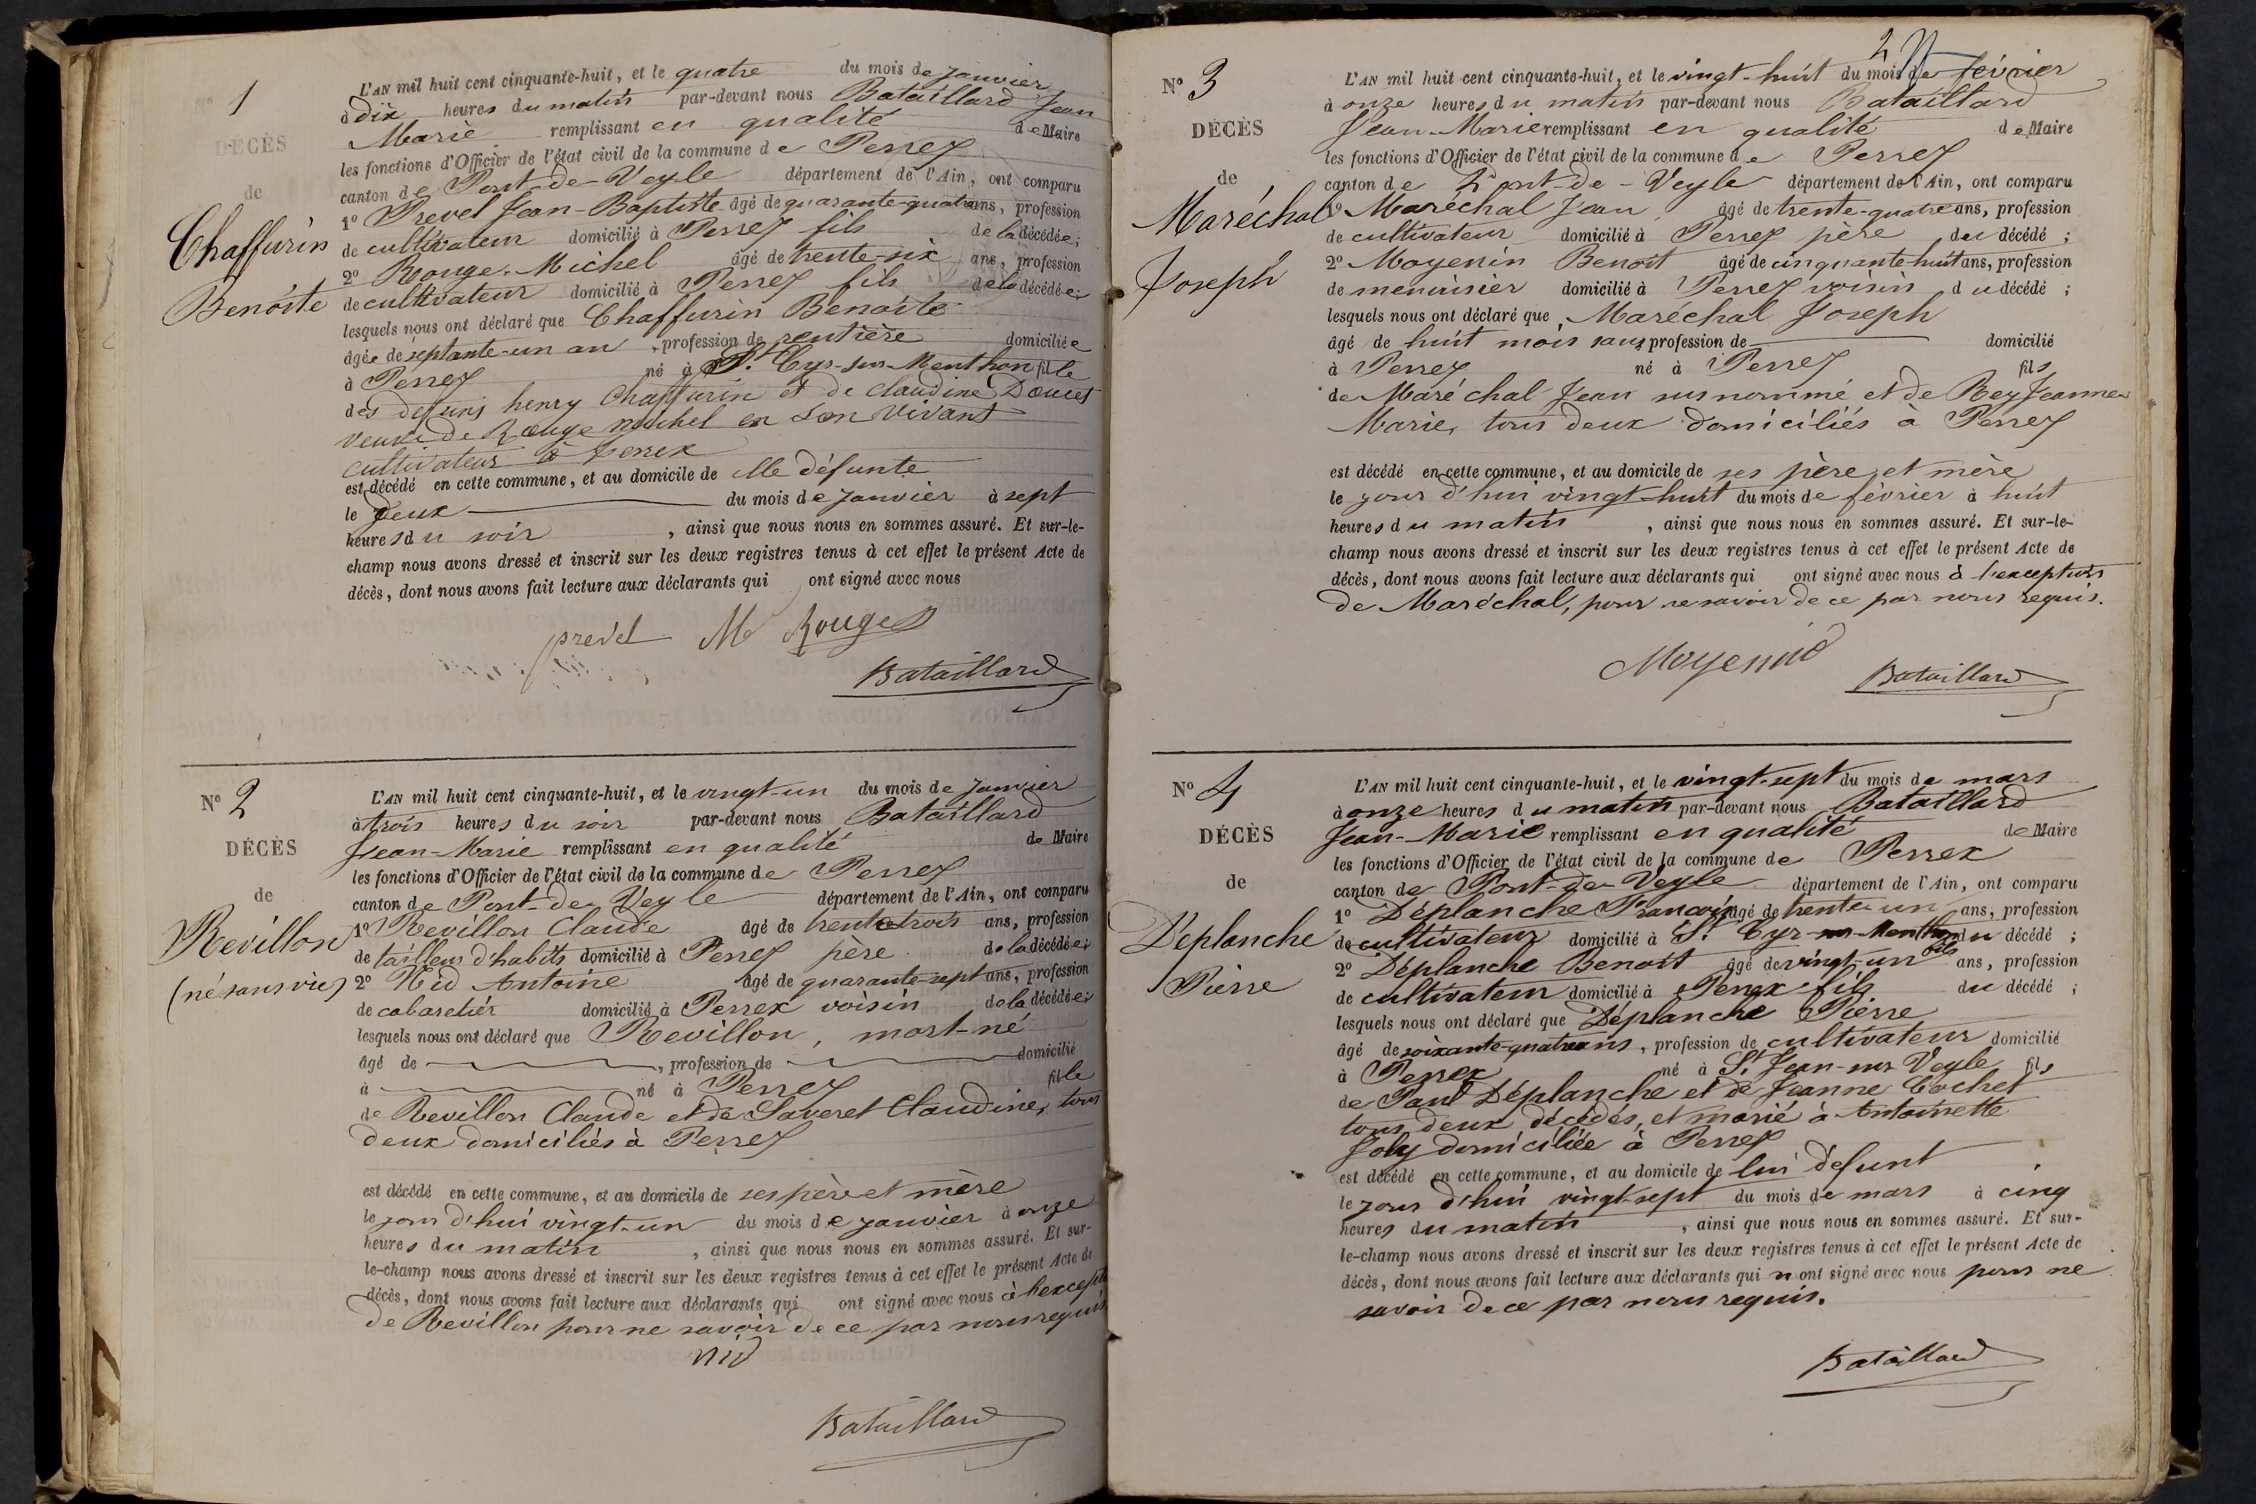 N° 1
DÉCÈS
de
Chaffurin
Benoîte
L'AN mil huit cent cinquante-huit, et le quatre du mois de janvier
à dix heures du matin par-devant nous Bataillard Jean
Marie remplissant en qualité de Maire
les fonctions d'Officier de l'état civil de la commune de Perrex
canton de Pont-de-Veyle département de l'Ain, ont comparu
1° Prevel Jean-Baptiste âgé de quarante-quatre ans, profession
de cultivateur domicilié à Perrex fils de la décédée;
2° Rouge Michel âgé de trente-six ans, profession
de cultivateur domicilié à Perrex fils de la décédée;
lesquels nous ont déclaré que Chaffurin Benoîte
âgée de septante-un an, profession de rentière domiciliée
à Perrex né à St. Cyr-sur-Menthon fille
des defunts henry Chaffurin et de Claudine Doucet
veuve de Rouge michel en son vivant
cultivateur à Perrex
est décédé en cette commune, et au domicile de elle défunte
le deux du mois de janvier à sept
heures du soir, ainsi que nous nous en sommes assuré. Et sur-le-
champ nous avons dressé et inscrit sur les deux registres tenus à cet effet le présent Acte de
décès, dont nous avons fait lecture aux déclarants qui ont signé avec nous
prevel M Rouge
Bataillard
N° 2
DÉCÈS
de
Revillon
(né sans vie)
L'AN mil huit cent cinquante-huit, et le vingt-un du mois de janvier
à trois heures du soir par-devant nous Bataillard
Jean-Marie remplissant en qualité de Maire
les fonctions d'Officier de l'état civil de la commune de Perrex
canton de Pont-de-Veyle département de l'Ain, ont comparu
1° Revillon Claude âgé de trente trois ans, profession
de tailleur d'habits domicilié à Perrex père de la décédée;
2° Nid Antoine âgé de quarante-sept ans, profession
de cabaretier domicilié à Perrex voisin de la décédée;
lesquels nous ont déclaré que Revillon, mort-né
âgé de , profession de domicilié
à né à Perrex fille
de Revillon Claude et de Laveret Claudine, tous
deux domiciliés à Perrex
est décédé en cette commune, et au domicile de ses père et mère
le jour d'hui vingt-un du mois de janvier à onze
heures du matin, ainsi que nous nous en sommes assuré. Et sur-
le-champ nous avons dressé et inscrit sur les deux registres tenus à cet effet le présent Acte de
décès, dont nous avons fait lecture aux déclarants qui ont signé avec nous à l'except
de Revillon pour ne savoir de ce par nous requis
nid
Bataillard
2
N° 3
DÉCÈS
de
Maréchal
Joseph
L'AN mil huit cent cinquante-huit, et le vingt-huit du mois de février
à onze heures du matin par-devant nous Bataillard
Jean-Marie remplissant en qualité de Maire
les fonctions d'Officier de l'état civil de la commune de Perrex
canton de Pont-de-Veyle département de l'Ain, ont comparu
1° Maréchal Jean, âgé de trente-quatre ans, profession
de cultivateur domicilié à Perrex père du décédé;
2° Moyenin Benoît âgé de cinquante-huit ans, profession
de menuisier domicilié à Perrex voisin du décédé;
lesquels nous ont déclaré que Maréchal Joseph
âgé de huit mois sans profession de domicilié
à Perrex né à Perrex fils
de Maréchal Jean susnommé et de Rey Jeanne
Marie, tous deux domiciliés à Perrex
est décédé en cette commune, et au domicile de ses père et mère
le jour d'hui vingt-huit du mois de février à huit
heures du matin, ainsi que nous nous en sommes assuré. Et sur-le-
champ nous avons dressé et inscrit sur les deux registres tenus à cet effet le présent Acte de
décès, dont nous avons fait lecture aux déclarants qui ont signé avec nous à l'exception
de Maréchal, pour ne savoir de ce par nous requis.
Moyenin Bataillard
N° 4
DÉCÈS
de
Déplanche
Pierre
L'AN mil huit cent cinquante-huit, et le vingt-sept du mois de mars
à onze heures du matin par-devant nous Bataillard
Jean-Marie remplissant en qualité de Maire
les fonctions d'Officier de l'état civil de la commune de Perrex
canton de Pont-de-Veyle département de l'Ain, ont comparu
1° Déplanche François âgé de trente-un ans, profession
de cultivateur domicilié à St Cyr-sur-Menthon fils du décédé;
2° Déplanche Benoît âgé de vingt-un ans, profession
de cultivateur domicilié à Perrex fils du décédé;
lesquels nous ont déclaré que Déplanche Pierre
âgé de soixante-quatre ans, profession de cultivateur domicilié
à Perrex né à St Jean-sur Veyle fils
de Paul Déplanche et de Jeanne Cochet
tous deux décédés, et marié à Antoinette
Joly domiciliée à Perrex
est décédé en cette commune, et au domicile de lui défunt
le jour d'hui vingt-sept du mois de mars à cinq
heures du matin, ainsi que nous nous en sommes assuré. Et sur-
le-champ nous avons dressé et inscrit sur les deux registres tenus à cet effet le présent Acte de
décès, dont nous avons fait lecture aux déclarants qui n'ont signé avec nous pour ne
savoir de ce par nous requis.
Bataillard